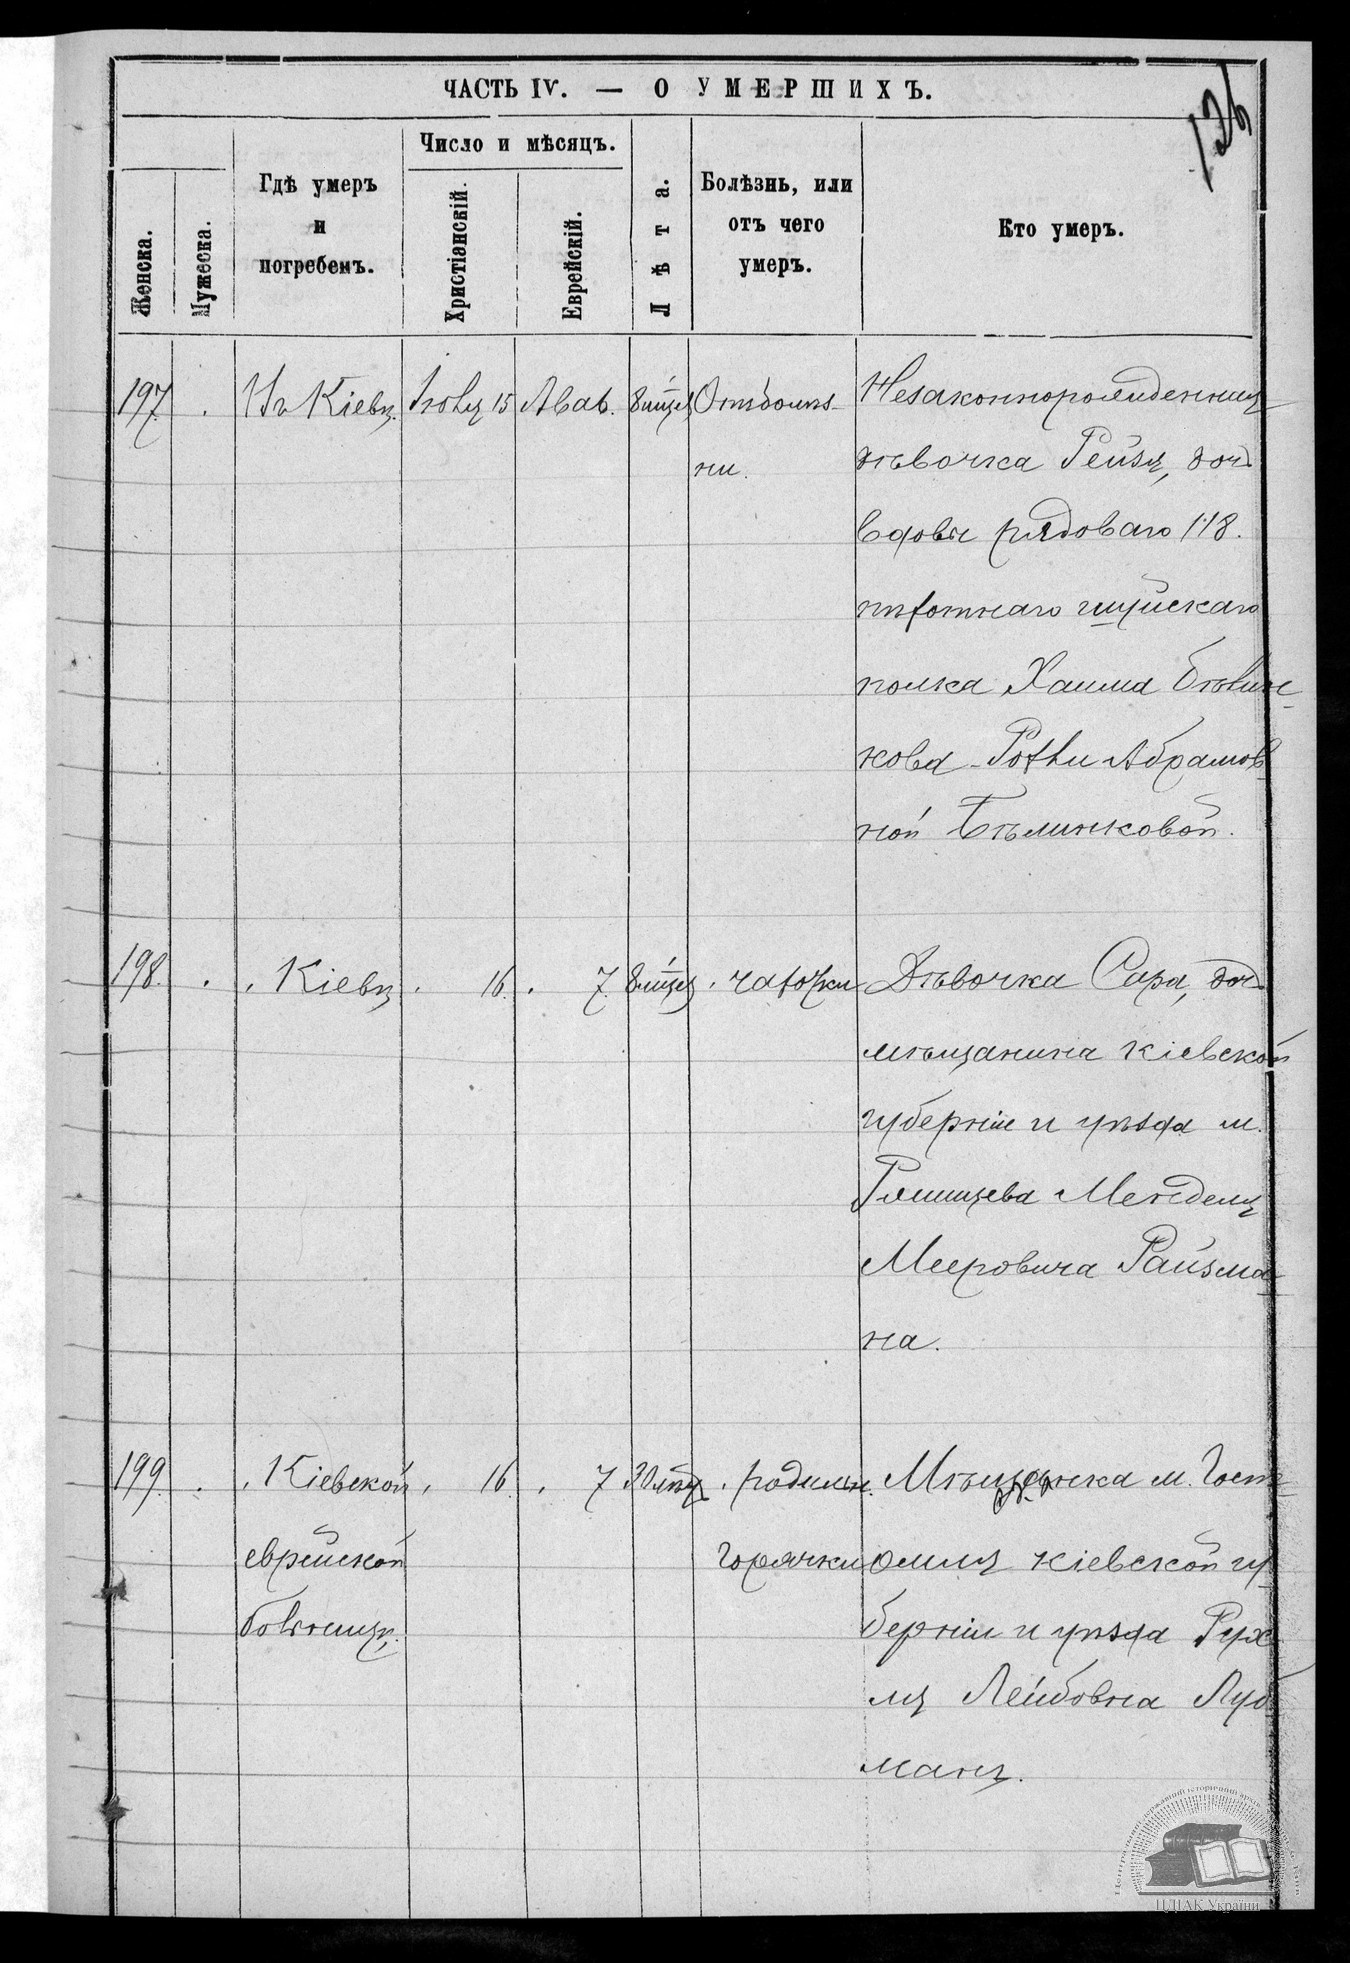 ЧАСТЬ IV. — О УМЕРШИХЪ.
126
Женска.
Мужеска.
Гдѣ умеръ
и
погребенъ.
Число и мѣсяцъ.
Христіанскій.
Еврейскій.
Лѣта.
Болѣзнь, или
отъ чего
умеръ.
Кто умеръ.
197. . Въ Кіевѣ. Іюля 15 Авъ. 8 мѣсяц Отъ болѣз-
ни.
Незаконнорожденная
дѣвочка Рейзя, доч
вдовы рядоваго 118.
пѣхотнаго шуйскаго
полка Хаима Бѣлин-
кова Абрамов
ной Бѣлинковой.
198. . . Кіевѣ . 16. . 7. 8 мѣсяц . чахотки Дѣвочка Сара, доч
мѣщанина кіевской
губерніи и уѣзда м.
Ржищева Менделя
Мееровича Райзма-
на.
199. . . Кіевской . 16. . 7 30 лѣтъ . родильн. Мѣщанка м. Гост-
еврейской горячки омля кіевской гу-
больницѣ. берніи и уѣзда Рух
ля Лейбовна Луб
манъ.
ЦДІАК України